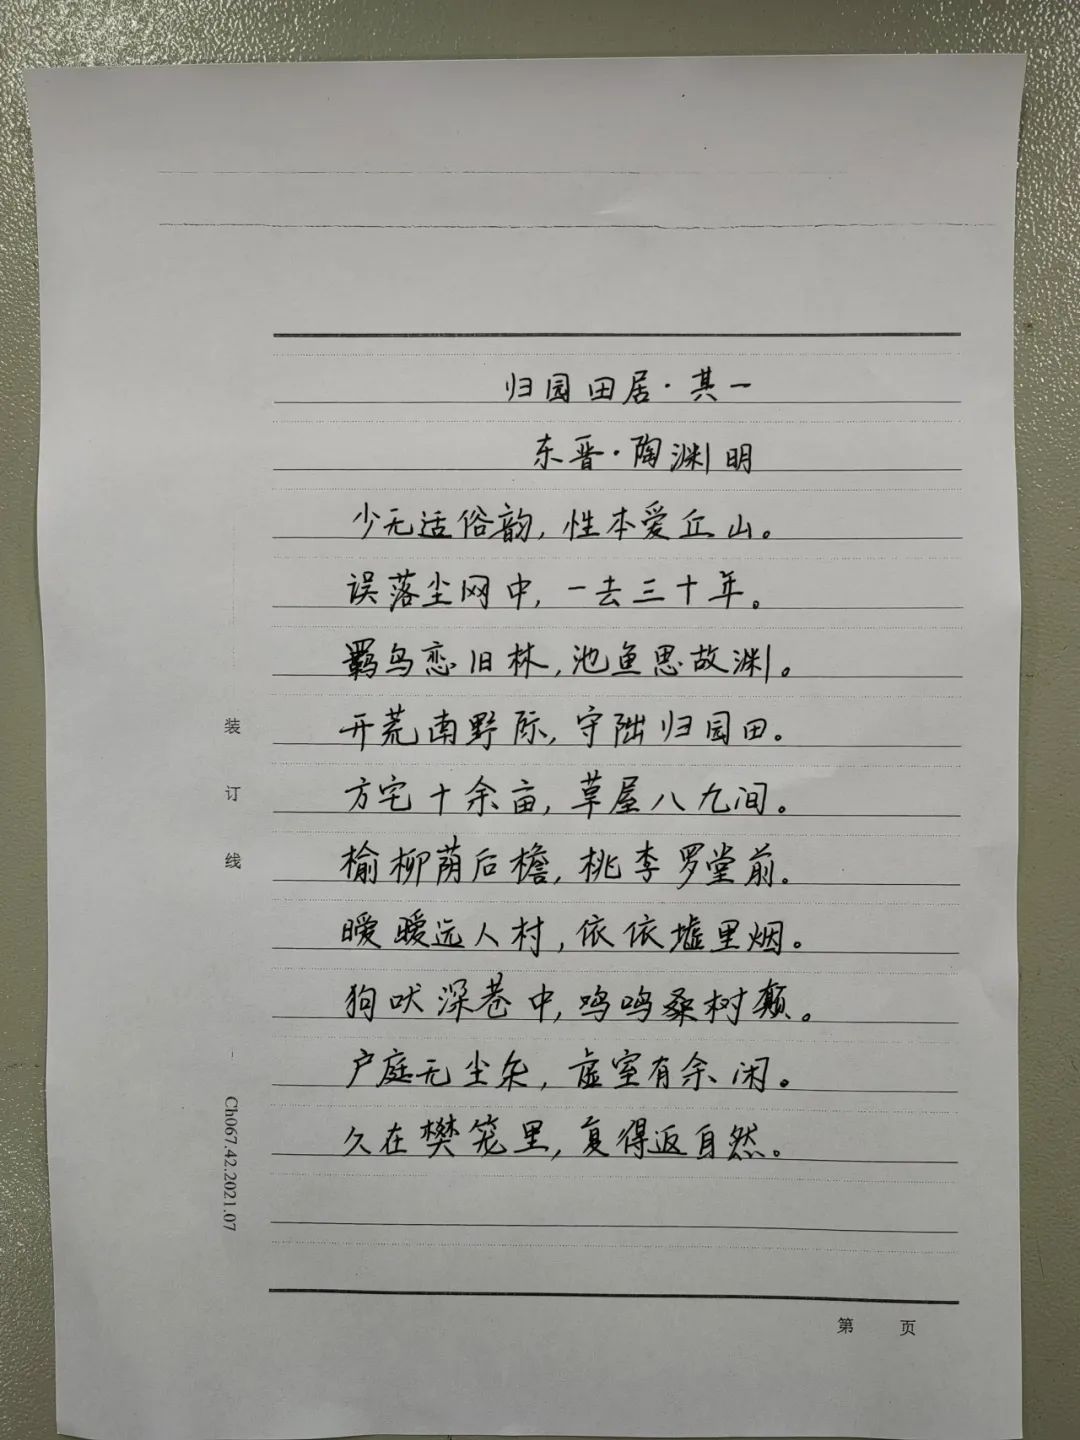 归园田居·其一
东晋·陶渊明
少无适俗韵,性本爱丘山。
误落尘网中,一去三十年。
羁鸟恋旧林,池鱼思故渊。
开荒南野际,守拙归园田。
方宅十余亩,草屋八九间。
榆柳荫后檐,桃李罗堂前。
暧暧远人村,依依墟里烟。
狗吠深巷中,鸡鸣桑树颠。
户庭无尘杂,虚室有余闲。
久在樊笼里,复得返自然。
装订线
Ch067.42.2021.07
第 页